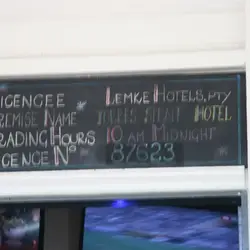 IGENCEE LEMKE HOTELS, PTY
REMISE NAME TORRES STRAIT HOTEL
RADING HOURS 10 AM MIDNIGHT
CENCE Nº 87623